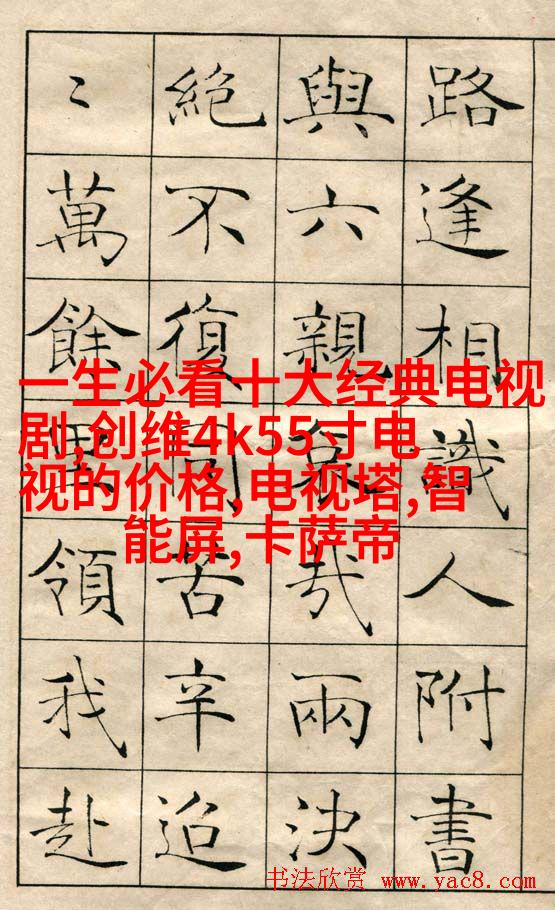 路逢相識人附書
與六親哀哉兩決
絕不復同苦辛迢
〻萬餘里領我赴
一生必看十大经典电视
剧,创维4k55寸电
视的价格,电视塔,智
能屏,卡萨帝
书法欣赏 www.yac8.com